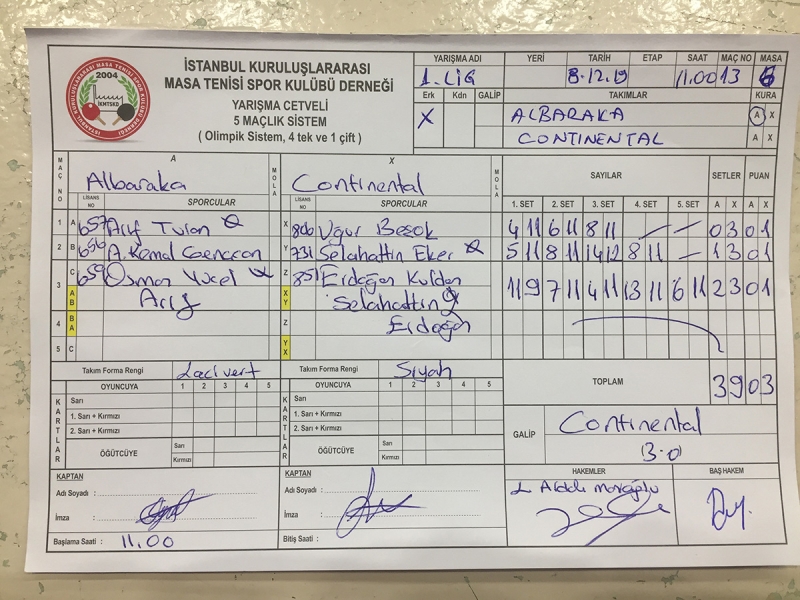 2004
İKMTSKD
İSTANBUL KURULUŞLARARASI MASA TENİSİ SPOR KULÜBÜ DERNEĞİ
İSTANBUL KURULUŞLARARASI
MASA TENİSİ SPOR KULÜBÜ DERNEĞİ
YARIŞMA CETVELİ
5 MAÇLIK SİSTEM
( Olimpik Sistem, 4 tek ve 1 çift )
YARIŞMA ADI YERİ TARİH ETAP SAAT MAÇ NO MASA
1. LİG 8.12.19 11.00 13 6
Erk Kdn GALİP TAKIMLAR KURA
X ALBARAKA A X
CONTINENTAL A X
MAÇ NO A MOLA X MOLA SAYILAR SETLER PUAN
Albaraka Continental
LİSANS NO SPORCULAR LİSANS NO SPORCULAR 1. SET 2. SET 3. SET 4. SET 5. SET A X A X
1 A 657 Arif X 806 Uğur 4 11 6 11 8 11 — — 0 3 0 1
2 B 656 A. Kemal Y 731 Selahattin Eker 5 11 8 11 14 12 8 11 — 1 3 0 1
3 C 659 Osman Yücel Z 851 Erdoğan 11 9 7 11 4 11 13 11 6 11 2 3 0 1
A B Arif X Y Selahattin
4 B A Z Erdoğan
5 C Y X
Takım Forma Rengi : Lacivert Takım Forma Rengi : Siyah TOPLAM 3 9 0 3
KARTLAR OYUNCUYA 1 2 3 4 5 KARTLAR OYUNCUYA 1 2 3 4 5
Sarı Sarı
1. Sarı + Kırmızı 1. Sarı + Kırmızı
2. Sarı + Kırmızı 2. Sarı + Kırmızı
ÖĞÜTCÜYE Sarı ÖĞÜTCÜYE Sarı
Kırmızı Kırmızı
GALİP Continental
(3-0)
KAPTAN KAPTAN HAKEMLER BAŞ HAKEM
Adı Soyadı : Adı Soyadı :
İmza : İmza :
Başlama Saati : 11.00 Bitiş Saati :